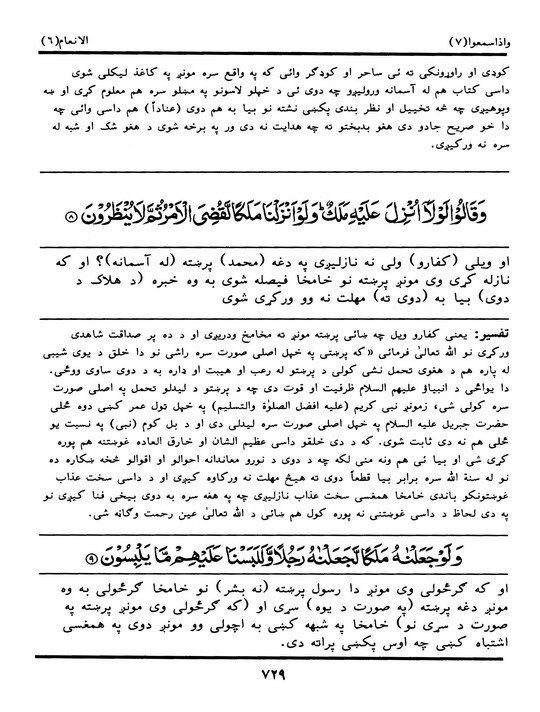 واذاسمعوا(٧)
الانعام(٦)
کودی او راوړونکی ته ئی ساحر او کوډګر وائی که په واقع سره مونږ په کاغذ لیکلی شوی
داسی کتاب هم له آسمانه ورولیږو چه دوی ئی د خپلو لاسونو په مښلو سره هم معلوم کړی او ښه
وپوهیږی چه څه تخییل او نظر بندی پکښی نشته نو بیا به هم دوی (عناداً) هم داسی وائی چه
دا خو صریح جادو دی هغو بدبختو ته چه هدایت نه دی ور په برخه شوی د هغو شک او شبه له
سره نه ورکیږی.
وَقَالُوْا لَوْلَآ اُنْزِلَ عَلَيْهِ مَلَكٌ ؕ وَلَوْ اَنْزَلْنَا مَلَكًا لَّقُضِيَ الْاَمْرُ ثُمَّ لَا يُنْظَرُوْنَ ٨
او ویلی (کفارو) ولی نه نازلیږی په دغه (محمد) پرښته (له آسمانه)؟ او که
نازله کړی وی مونږ پرښته نو خامخا فیصله شوی به وه خبره (د هلاک د
دوی) بیا به (دوی ته) مهلت نه وو ورکړی شوی
تفسیر: یعنی کفارو ویل چه ښائی پرښته مونږ ته مخامخ ودریږی او د ده پر صداقت شاهدی
ورکړی نو الله تعالیٰ فرمائی «که پرښتی په خپل اصلی صورت سره راشی نو دا خلق د یوی شیبی
له پاره هم د هغوی تحمل نشی کولی د پرښتو له رعب او هیبت او داره به د دوی ساوی ووځی.
دا یواځی د انبیاؤ علیهم السلام ظرفیت او قوت دی چه د پرښتو د لیدلو تحمل په اصلی صورت
سره کولی شی، زمونږ نبی کریم (علیه افضل الصلوٰة والتسلیم) په خپل تول عمر کښی دوه ځلی
حضرت جبریل علیه السلام په خپل اصلی صورت سره لیدلی دی او د بل کوم (نبی) په نسبت یو
ځلی هم نه دی ثابت شوی. که د دی خلقو داسی عظیم الشان او خارق العاده غوښتنه هم پوره
کړی شی او بیا ئی هم ونه منی لکه چه د دوی د نورو معاندانه احوالو او اقوالو څخه ښکاره ده
نو له سنة الله سره برابر بیا قطعاً دوی ته هیڅ مهلت نه ورکاوه کیږی او د داسی سخت عذاب
غوښتونکو باندی خامخا همغسی سخت عذاب نازلیږی چه په هغه سره به دوی بیخی فنا کیږی نو
په دی لحاظ د داسی غوښتنی نه پوره کول هم ښائی د الله تعالیٰ عین رحمت وګاڼه شی.
وَلَوْ جَعَلْنٰهُ مَلَكًا لَّجَعَلْنٰهُ رَجُلًا وَّلَلَبَسْنَا عَلَيْهِمْ مَّا يَلْبِسُوْنَ ٩
او که ګرځولی وی مونږ دا رسول پرښته (نه بشر) نو خامخا ګرځولی به وه
مونږ دغه پرښته (په صورت د یوه) سړی او (که ګرځولی وی مونږ پرښته په
صورت د سړی نو) خامخا په شبهه کښی به اچولی وو مونږ دوی په همغسی
اشتباه کښی چه اوس پکښی پراته دی.
٧٢٩